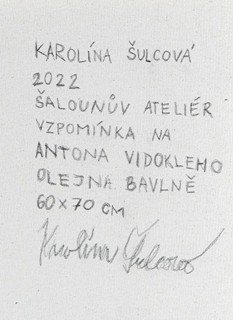 KAROLÍNA ŠULCOVÁ
2022
ŠALOUNŮV ATELIÉR
VZPOMÍNKA NA
ANTONA VIDOKLEHO
OLEJNA BAVLNĚ
60 x 70 CM
Karolína Šulcová